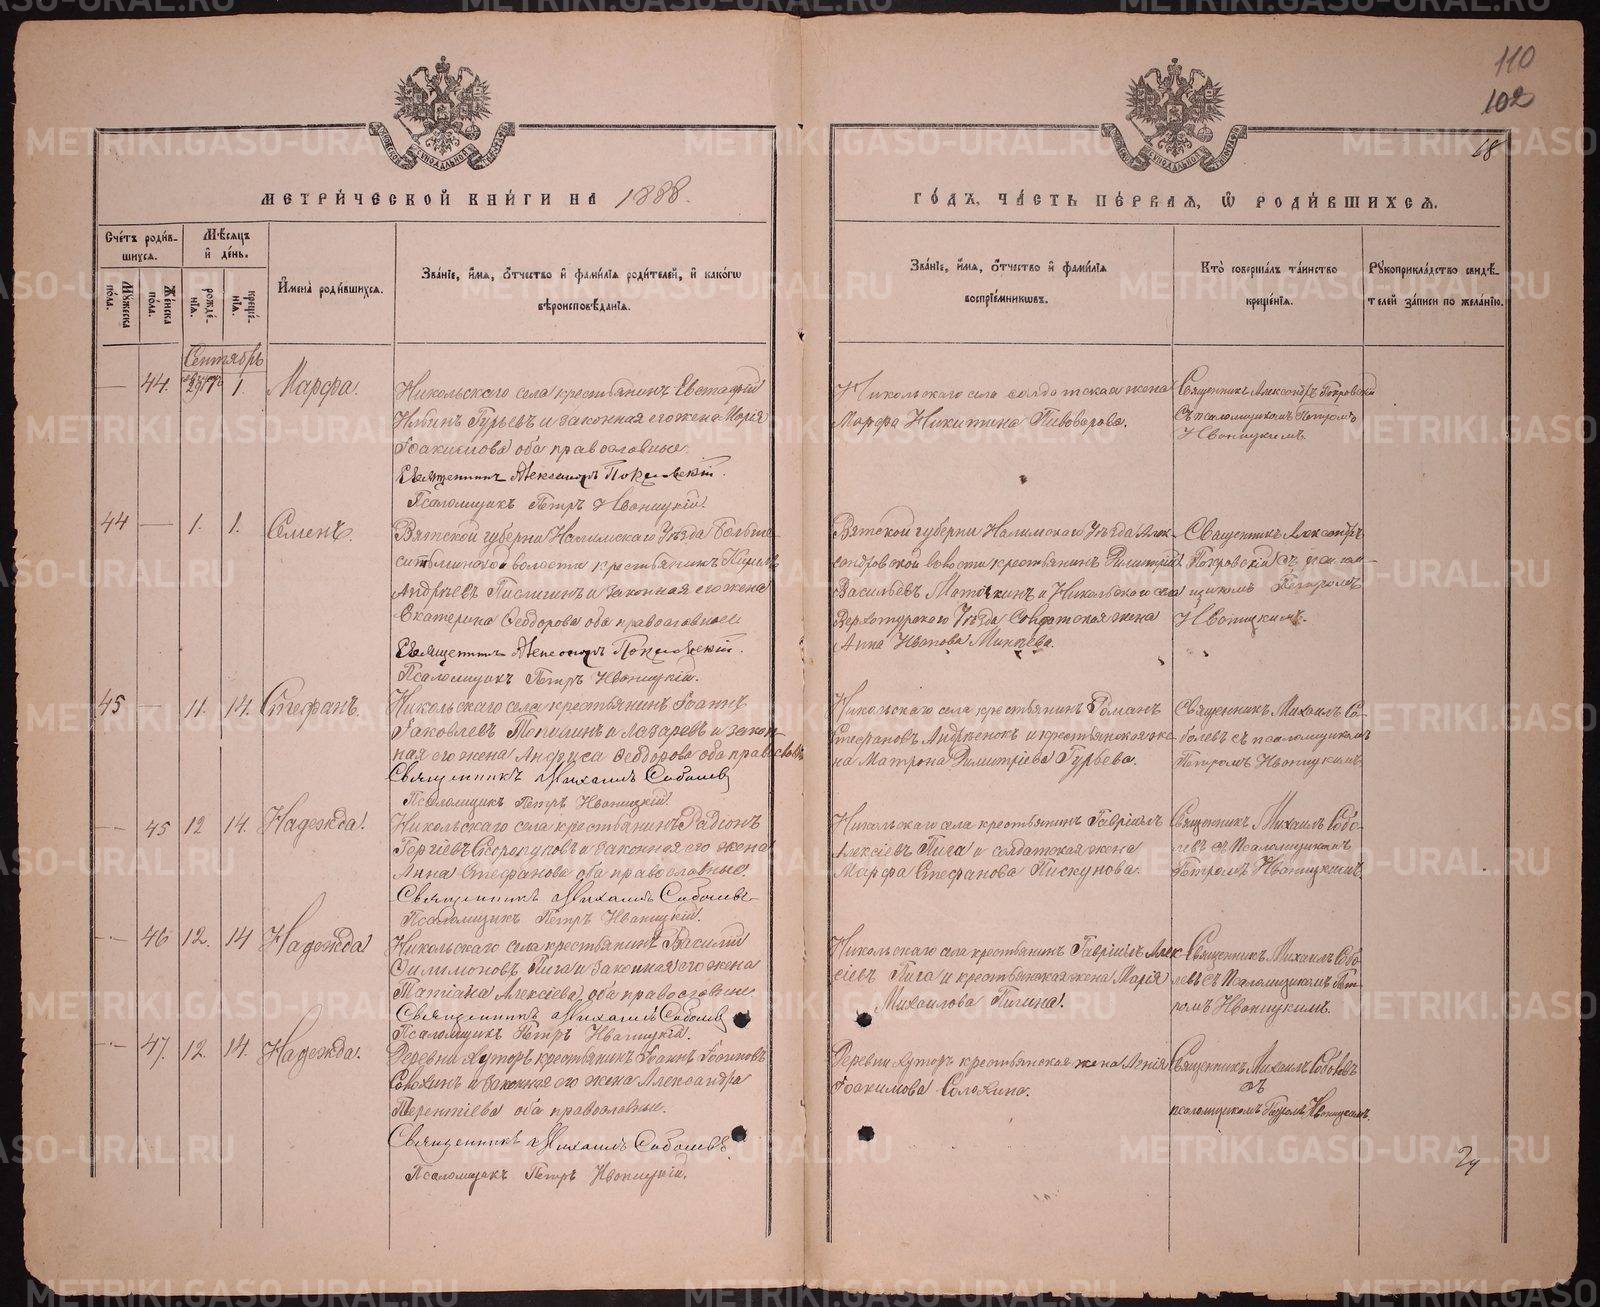 110
102
18
МЕТРИЧЕСКОЙ КНИГИ НА 1888.
ГОДЪ, ЧАСТЬ ПЕРВАЯ, Ѡ РОДИВШИХСЯ.
Счетъ родив-
шихся.
Мужеска пола.
Женска пола.
Мѣсяцъ
и день.
рожде-
нїя.
креще-
нїя.
Имена родившихся.
Званїе, имя, ѻтчество и фамилїя родителей, и какогѡ
вѣроисповѣданїя.
Званїе, имя, ѻтчество и фамилїя
воспрїемникѡвъ.
Кто совершалъ таинство
крещенїя.
Рукоприкладство свидѣ-
телей записи по желанїю.
Сентябрь
44. 1. Марфа.
Никольскаго села крестьянинъ Евстафій
Ильинъ Гурьевъ и законная его жена Марія
Іоакимова оба православные.
Священникъ Александръ Покровскій.
Псаломщикъ Петръ Ивоницкій.
Никольскаго села солдатская жена
Марфа Никитина Пивоварова.
Священникъ Александръ Покровскій
съ псаломщикомъ Петромъ
Ивоницкимъ.
44 1. 1. Семенъ.
Вятской губерни Уѣзда
волости крестьянинъ
Андреевъ и законная его жена
Екатерина Феодорова оба православные
Священникъ Александръ Покровскій.
Псаломщикъ Петръ Ивоницкій.
Вятской губерни Уѣзда Алек-
сандровской волости крестьянинъ Димитрій
Васильевъ и Никольского села
Верхотурского Уѣзда Солдатская жена
Анна Иванова
Священникъ Александръ
Покровскій съ псалом-
щикомъ Петромъ
Ивоницкимъ.
45 11. 14. Стефанъ.
Никольскаго села крестьянинъ Іоаннъ
Іаковлевъ Топилинъ и Лазаревъ и закон-
ная его жена Анфуса Феодорова оба православ
Священникъ Михаилъ Соболев
Псаломщикъ Петръ Ивоницкій.
Никольскаго села крестьянинъ Романъ
Стефановъ и крестьянская же-
на Матрона Димитріева Гурьева.
Священникъ Михаилъ Со-
болевъ съ псаломщикомъ
Петромъ Ивоницкимъ.
45 12 14. Надежда.
Никольскаго села крестьянинъ Радіонъ
и законная его жена
Анна Стефанова оба православные.
Священникъ Михаилъ Соболевъ
Псаломщикъ Петръ Ивоницкій.
Никольскаго села крестьянинъ Гавріилъ
Алексіевъ Пига и солдатская жена
Марфа Стефанова Пискунова.
Священникъ Михаилъ Собо-
левъ съ Псаломщикомъ
Петромъ Ивоницкимъ.
46 12. 14 Надежда
Никольскаго села крестьянинъ Василій
Филимоновъ Пига и законная его жена
Татіана Алексіева оба православные
Священникъ Михаилъ Соболев
Псаломщикъ Петръ Ивоницкій.
Никольскаго села крестьянинъ Гавріилъ Алек
сіевъ Пига и крестьянская жена Марія
Михаилова Пигина.
Священникъ Михаилъ Собо
левъ съ Псаломщикомъ Пет-
ромъ Ивоницкимъ.
47. 12. 14. Надежда.
Деревни Хуторъ крестьянинъ Іоаннъ
и законная его жена Александра
Терентіева оба православные.
Священникъ Михаилъ Соболевъ.
Псаломщикъ Петръ Ивоницкій.
Деревни Хуторъ крестьянская жена
Іоакимова
Священникъ Михаилъ Соболевъ
съ
псаломщикомъ Петромъ Ивоницкимъ.
METRIKI.GASO-URAL.RU